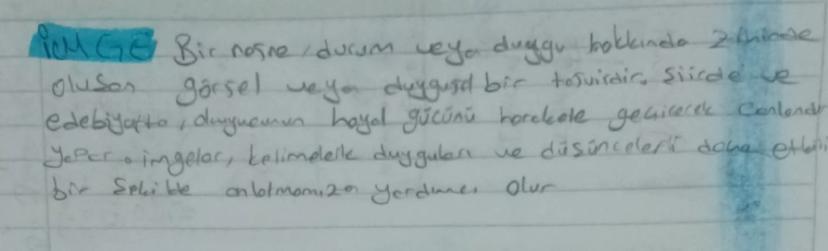 İMGE Bir nesne, durum veya duygu hakkında zihinde
oluşan görsel veya duygusal bir tasvirdir. Şiirde ve
edebiyatta, duyucunun hayal gücünü harekete geçirerek canlandır
yapar. imgeler, kelimelerle duyguları ve düşünceleri daha etkili
bir şekilde anlatmamıza yardımcı olur